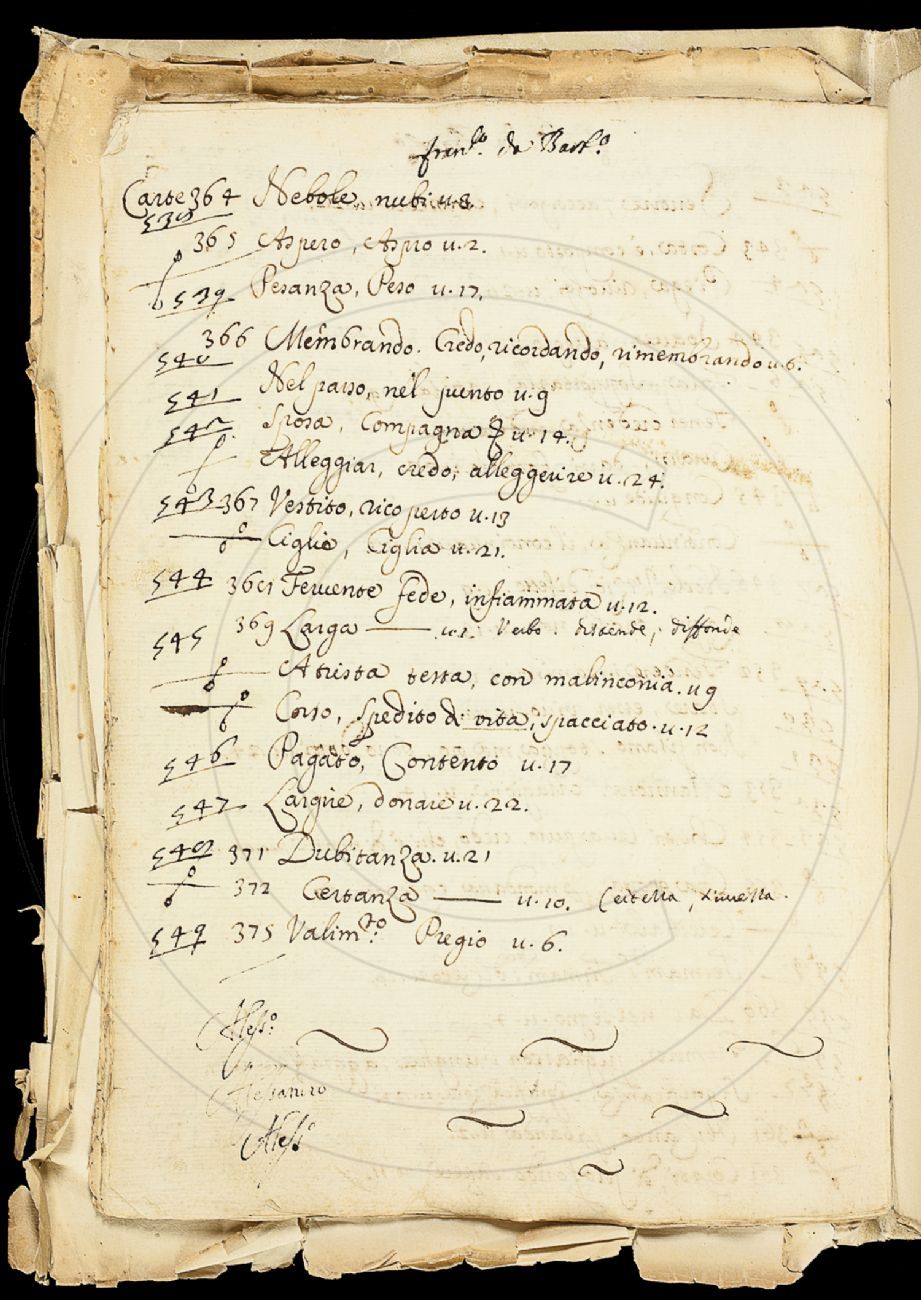 fran.co da Bart.o
Carte 364 Nebole, nubi u.8
539
365 Aspero, Aspro u.2.
539 Pesanza, Peso u.17.
366 Membrando. Credo, ricordando, rimemorando u.6.
540
541 Nel passo, nel punto u.9
542 Sposa, Compagna u.14.
Alleggiar, credo, alleggerire u.24.
543 367 Vestito, ricoperto u.13
Ciglie, Ciglia u.21.
544 368 Fervente fede, infiammata u.12.
545 369 Larga — u.1. Verbo. distende, diffonde
Atrista testa, con malinconia. u.9
Corso, spedito di vita, spacciato. u.12
546 Pagato, Contento u.17
547 Largire, donare u.22.
548 371 Dubitanza. u.21
372 Certanza — u.10. Certezza,
549 375 Valim.to Pregio u.6.
Aless.o
Alessandro
Aless.o